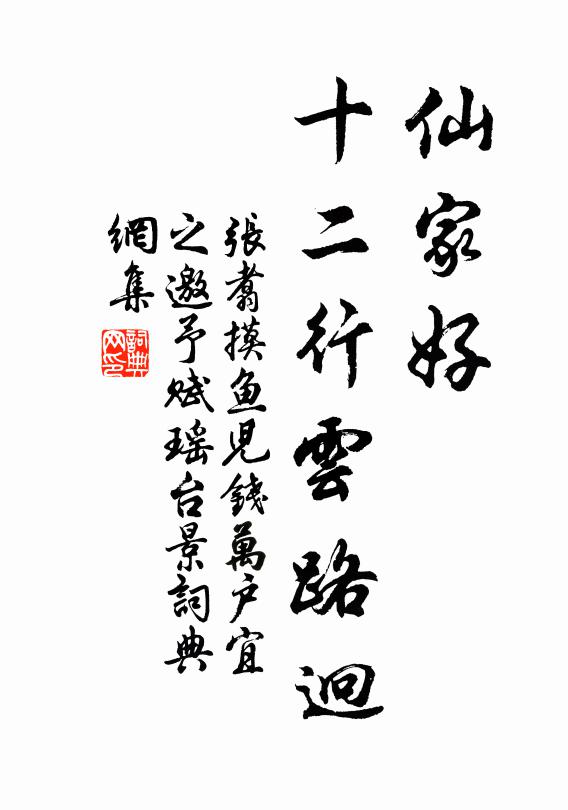 仙家好
十二行雲路迥
張翥摸魚兒錢萬戶宜
之邀予賦瑶台景詞典
網集
詞典
网印